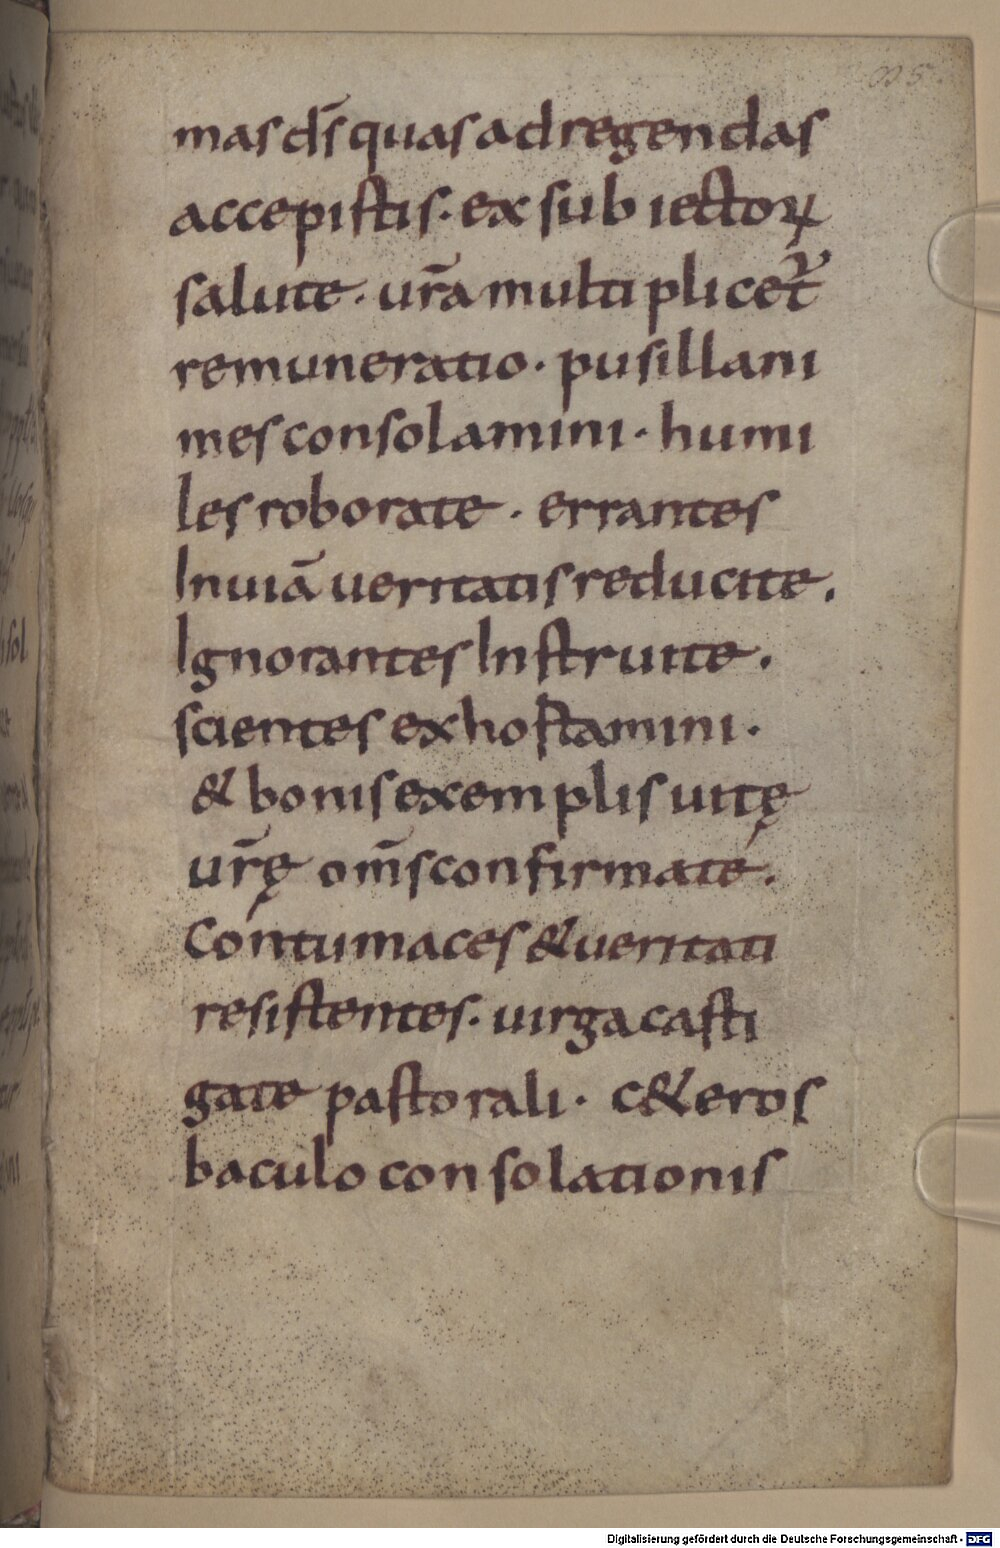 mas ds̄ quas ad regendas
accepistis· ex subiectoꝝ
salute· ur̄a multiplicet᷑
remuneratio· pusillani
mes consolamini· humi
les roborate· errantes
In uiā ueritatis reducite.
Ignorantes Instruite.
scientes exhostamini·
& bonis exemplis uitę
ur̄ę om̄s confirmate.
Contumaces & ueritati
resistentes· uirga casti
gate pastorali· c&eros
baculo consolationis
Digitalisierung gefördert durch die Deutsche Forschungsgemeinschaft - DFG